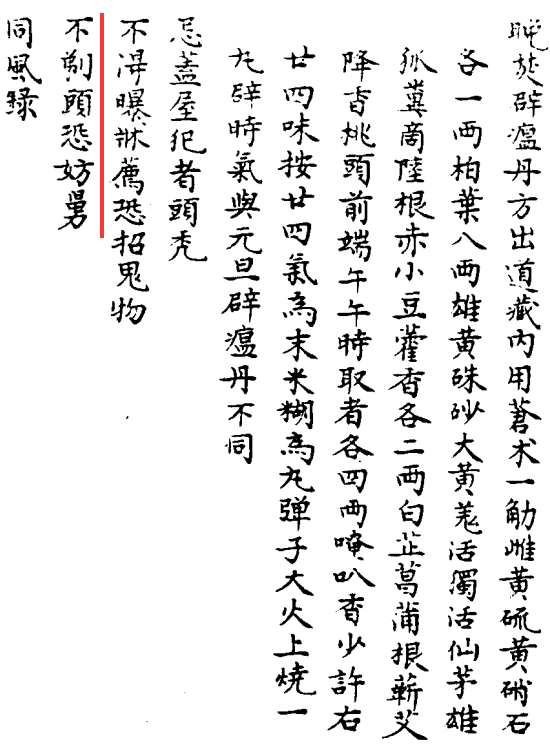 晚焚辟瘟丹方出道藏内用蒼朮一觔雌黄硫黄硝石
各一两柏葉八两雄黄硃砂大黄羗活獨活仙茅雄
狐糞啇陸根赤小豆藿香各二两白芷菖蒲根蘄艾
降香桃頭前端午午時取者各四两唵叭香少許右
廿四味按廿四氣為末米糊為丸弹子大火上燒一
丸辟時氣與元旦辟瘟丹不同
忌蓋屋犯者頭秃
不淂曝牀薦恐招鬼物
不剃頭恐妨舅
同風録